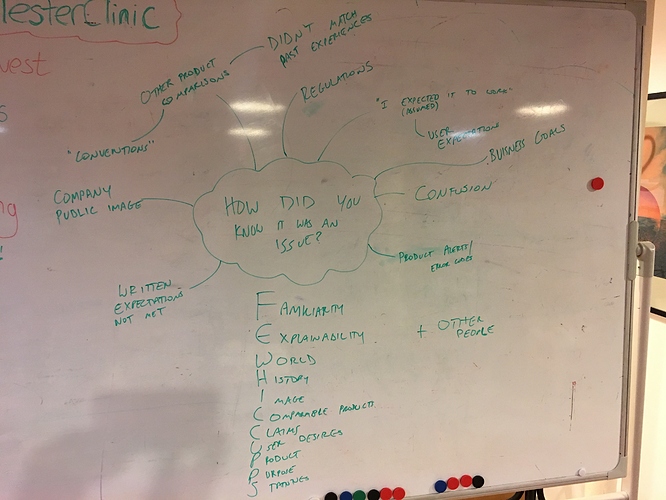 lesterClinic
vest
DIDN'T MATCH
PAST EXPERIENCES
OTHER PRODUCT
COMPARISONS
REGULATIONS
"CONVENTIONS"
"I EXPECTED IT TO WORK"
(ASSUMED)
USER
EXPECTATION
BUISNESS GOALS
COMPANY
PUBLIC IMAGE
CONFUSION
HOW DID YOU
KNOW IT WAS AN
ISSUE?
PRODUCT ALERTS/
ERROR CODES
WRITTEN
EXPECTATIONS
NOT MET
FAMILIARITY
EXPLAINABILITY
+ OTHER
PEOPLE
WORLD
HISTORY
IMAGE
COMPARABLE PRODUCTS
CLAIMS
USER DESIRES
PRODUCT
PURPOSE